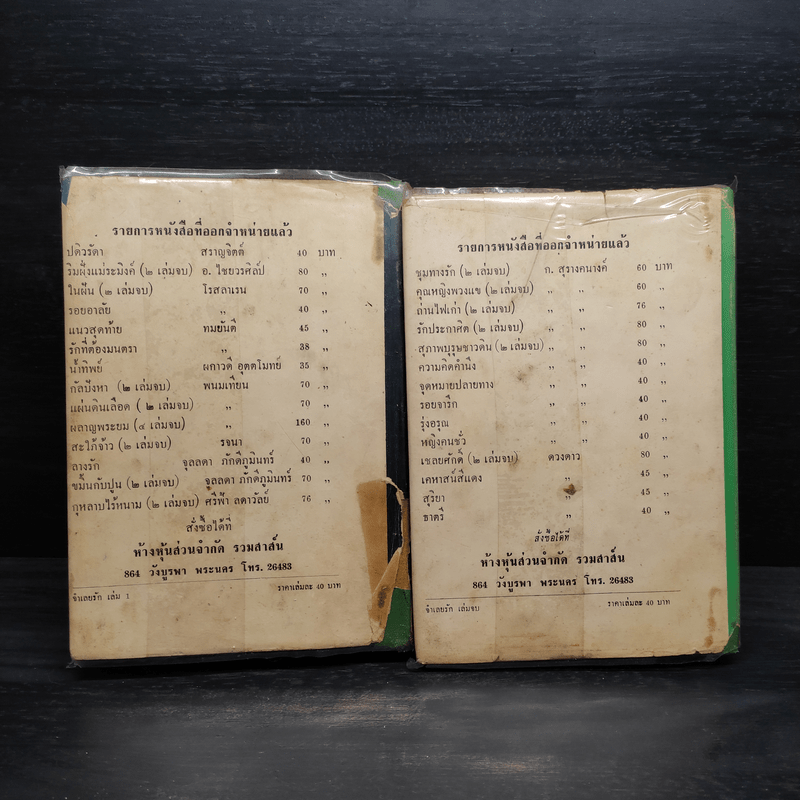 รายการหนังสือที่ออกจำหน่ายแล้ว
ปดิวรัดา สราญจิตต์ 40 บาท
ริมฝั่งแม่ระมิงค์ (๒ เล่มจบ) อ. ไชยวรศิลป์ 80 „
ในฝัน (๒ เล่มจบ) โรสลาเรน 70 „
รอยอาลัย „ 40 „
แนวสุดท้าย ทมยันตี 45 „
รักที่ต้องมนตรา „ 38 „
น้ำทิพย์ ผกาวดี อุตตโมทย์ 35 „
กัลปังหา (๒ เล่มจบ) พนมเทียน 70 „
แผ่นดินเลือด (๒ เล่มจบ) „ 70 „
ผลาญพระยม (๔ เล่มจบ) „ 160 „
สะใภ้จ้าว (๒ เล่มจบ) รจนา 70 „
ลางรัก จุลลดา ภักดีภูมินทร์ 40 „
ขมิ้นกับปูน (๒ เล่มจบ) จุลลดา ภักดีภูมินทร์ 70 „
กุหลาบไร้หนาม (๒ เล่มจบ) ศรีฟ้า ลดาวัลย์ 76 „
สั่งซื้อได้ที่
ห้างหุ้นส่วนจำกัด รวมสาส์น
864 วังบูรพา พระนคร โทร. 26483
จำเลยรัก เล่ม 1 ราคาเล่มละ 40 บาท
รายการหนังสือที่ออกจำหน่ายแล้ว
ชุมทางรัก (๒ เล่มจบ) ก. สุรางคนางค์ 60 บาท
คุณหญิงพวงแข (๒ เล่มจบ) „ „ 60 „
ถ่านไฟเก่า (๒ เล่มจบ) „ „ 76 „
รักประกาศิต (๒ เล่มจบ) „ „ 80 „
สุภาพบุรุษชาวดิน (๒ เล่มจบ) „ „ 80 „
ความคิดคำนึง „ „ 40 „
จุดหมายปลายทาง „ „ 40 „
รอยจารึก „ „ 40 „
รุ่งอรุณ „ „ 40 „
หญิงคนชั่ว „ „ 40 „
เชลยศักดิ์ (๒ เล่มจบ) ดวงดาว 80 „
เคหาสน์สีแดง „ 45 „
สุริยา „ 45 „
ธาตรี „ 40 „
สั่งซื้อได้ที่
ห้างหุ้นส่วนจำกัด รวมสาส์น
864 วังบูรพา พระนคร โทร. 26483
จำเลยรัก เล่มจบ ราคาเล่มละ 40 บาท